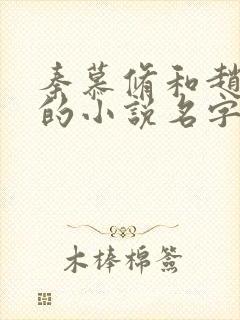 秦慕脩和趙
的小說名字
木棒棉簽